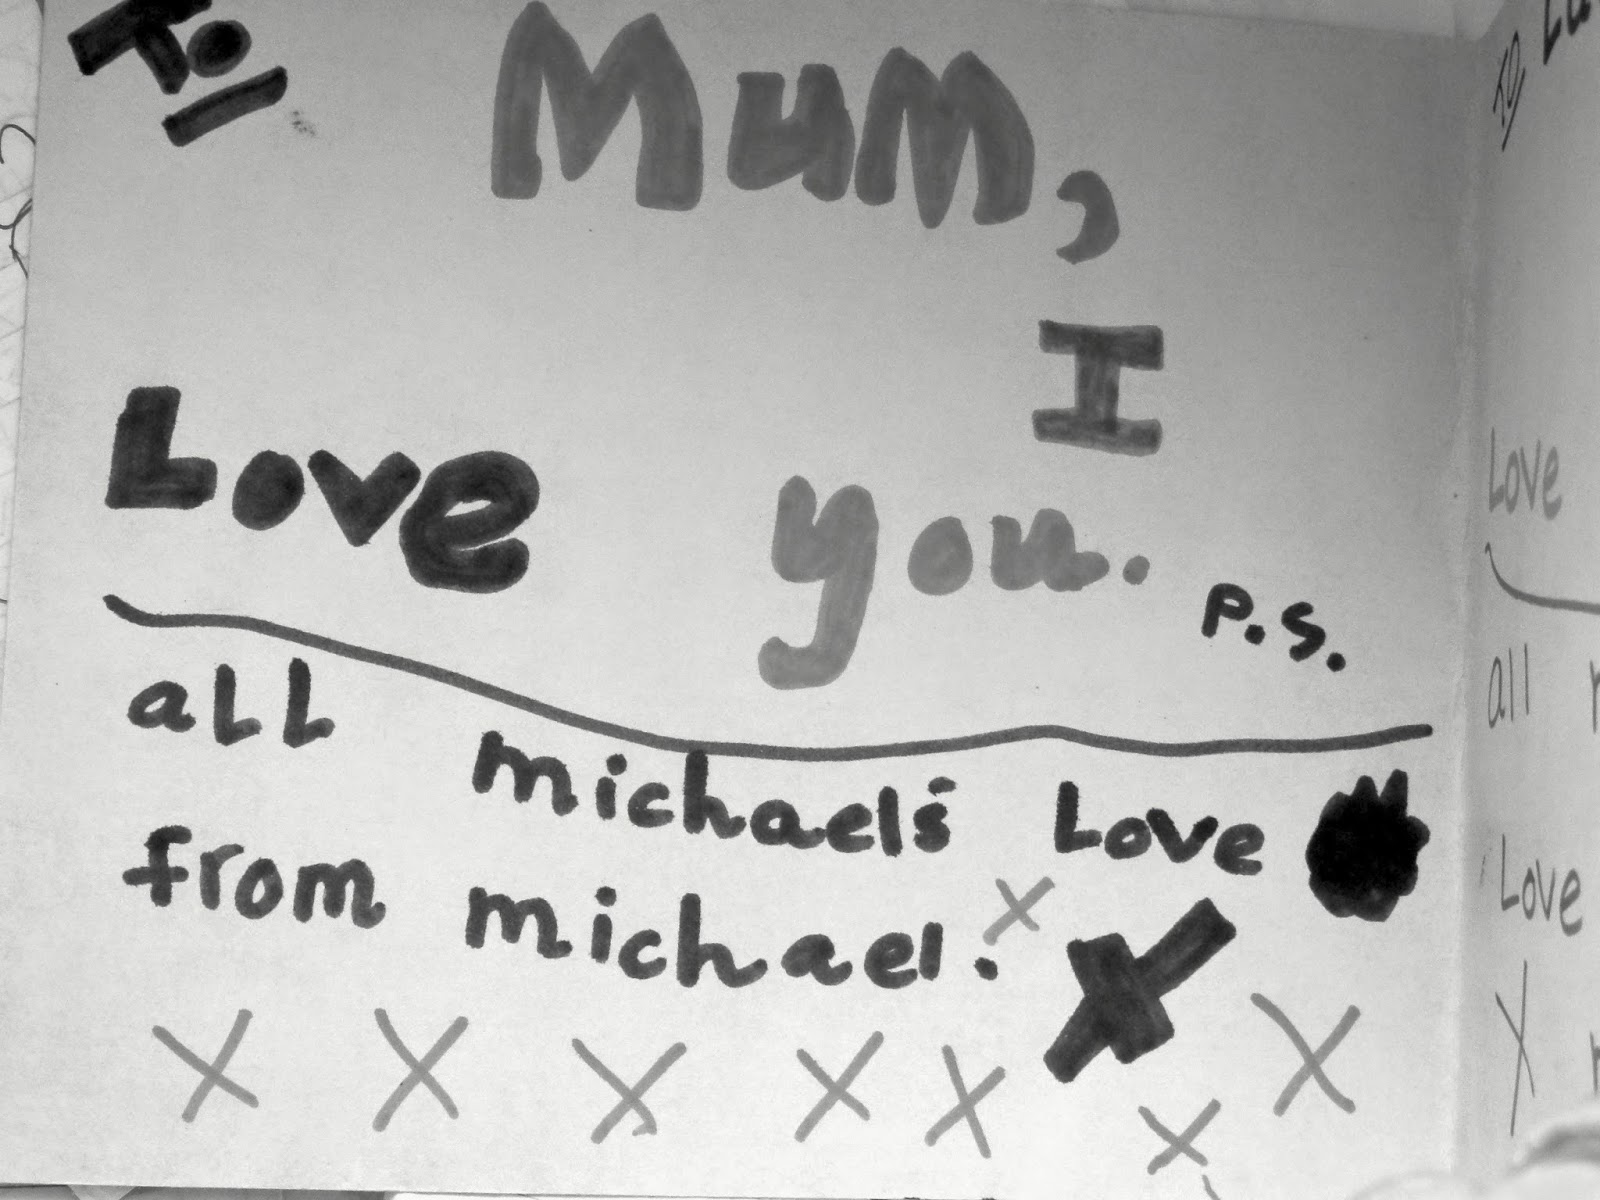 To/ Mum,
I
Love you. P.S.
all michael's Love
from michael. X X
X X X X X X X
To/
Love
all
Love
X